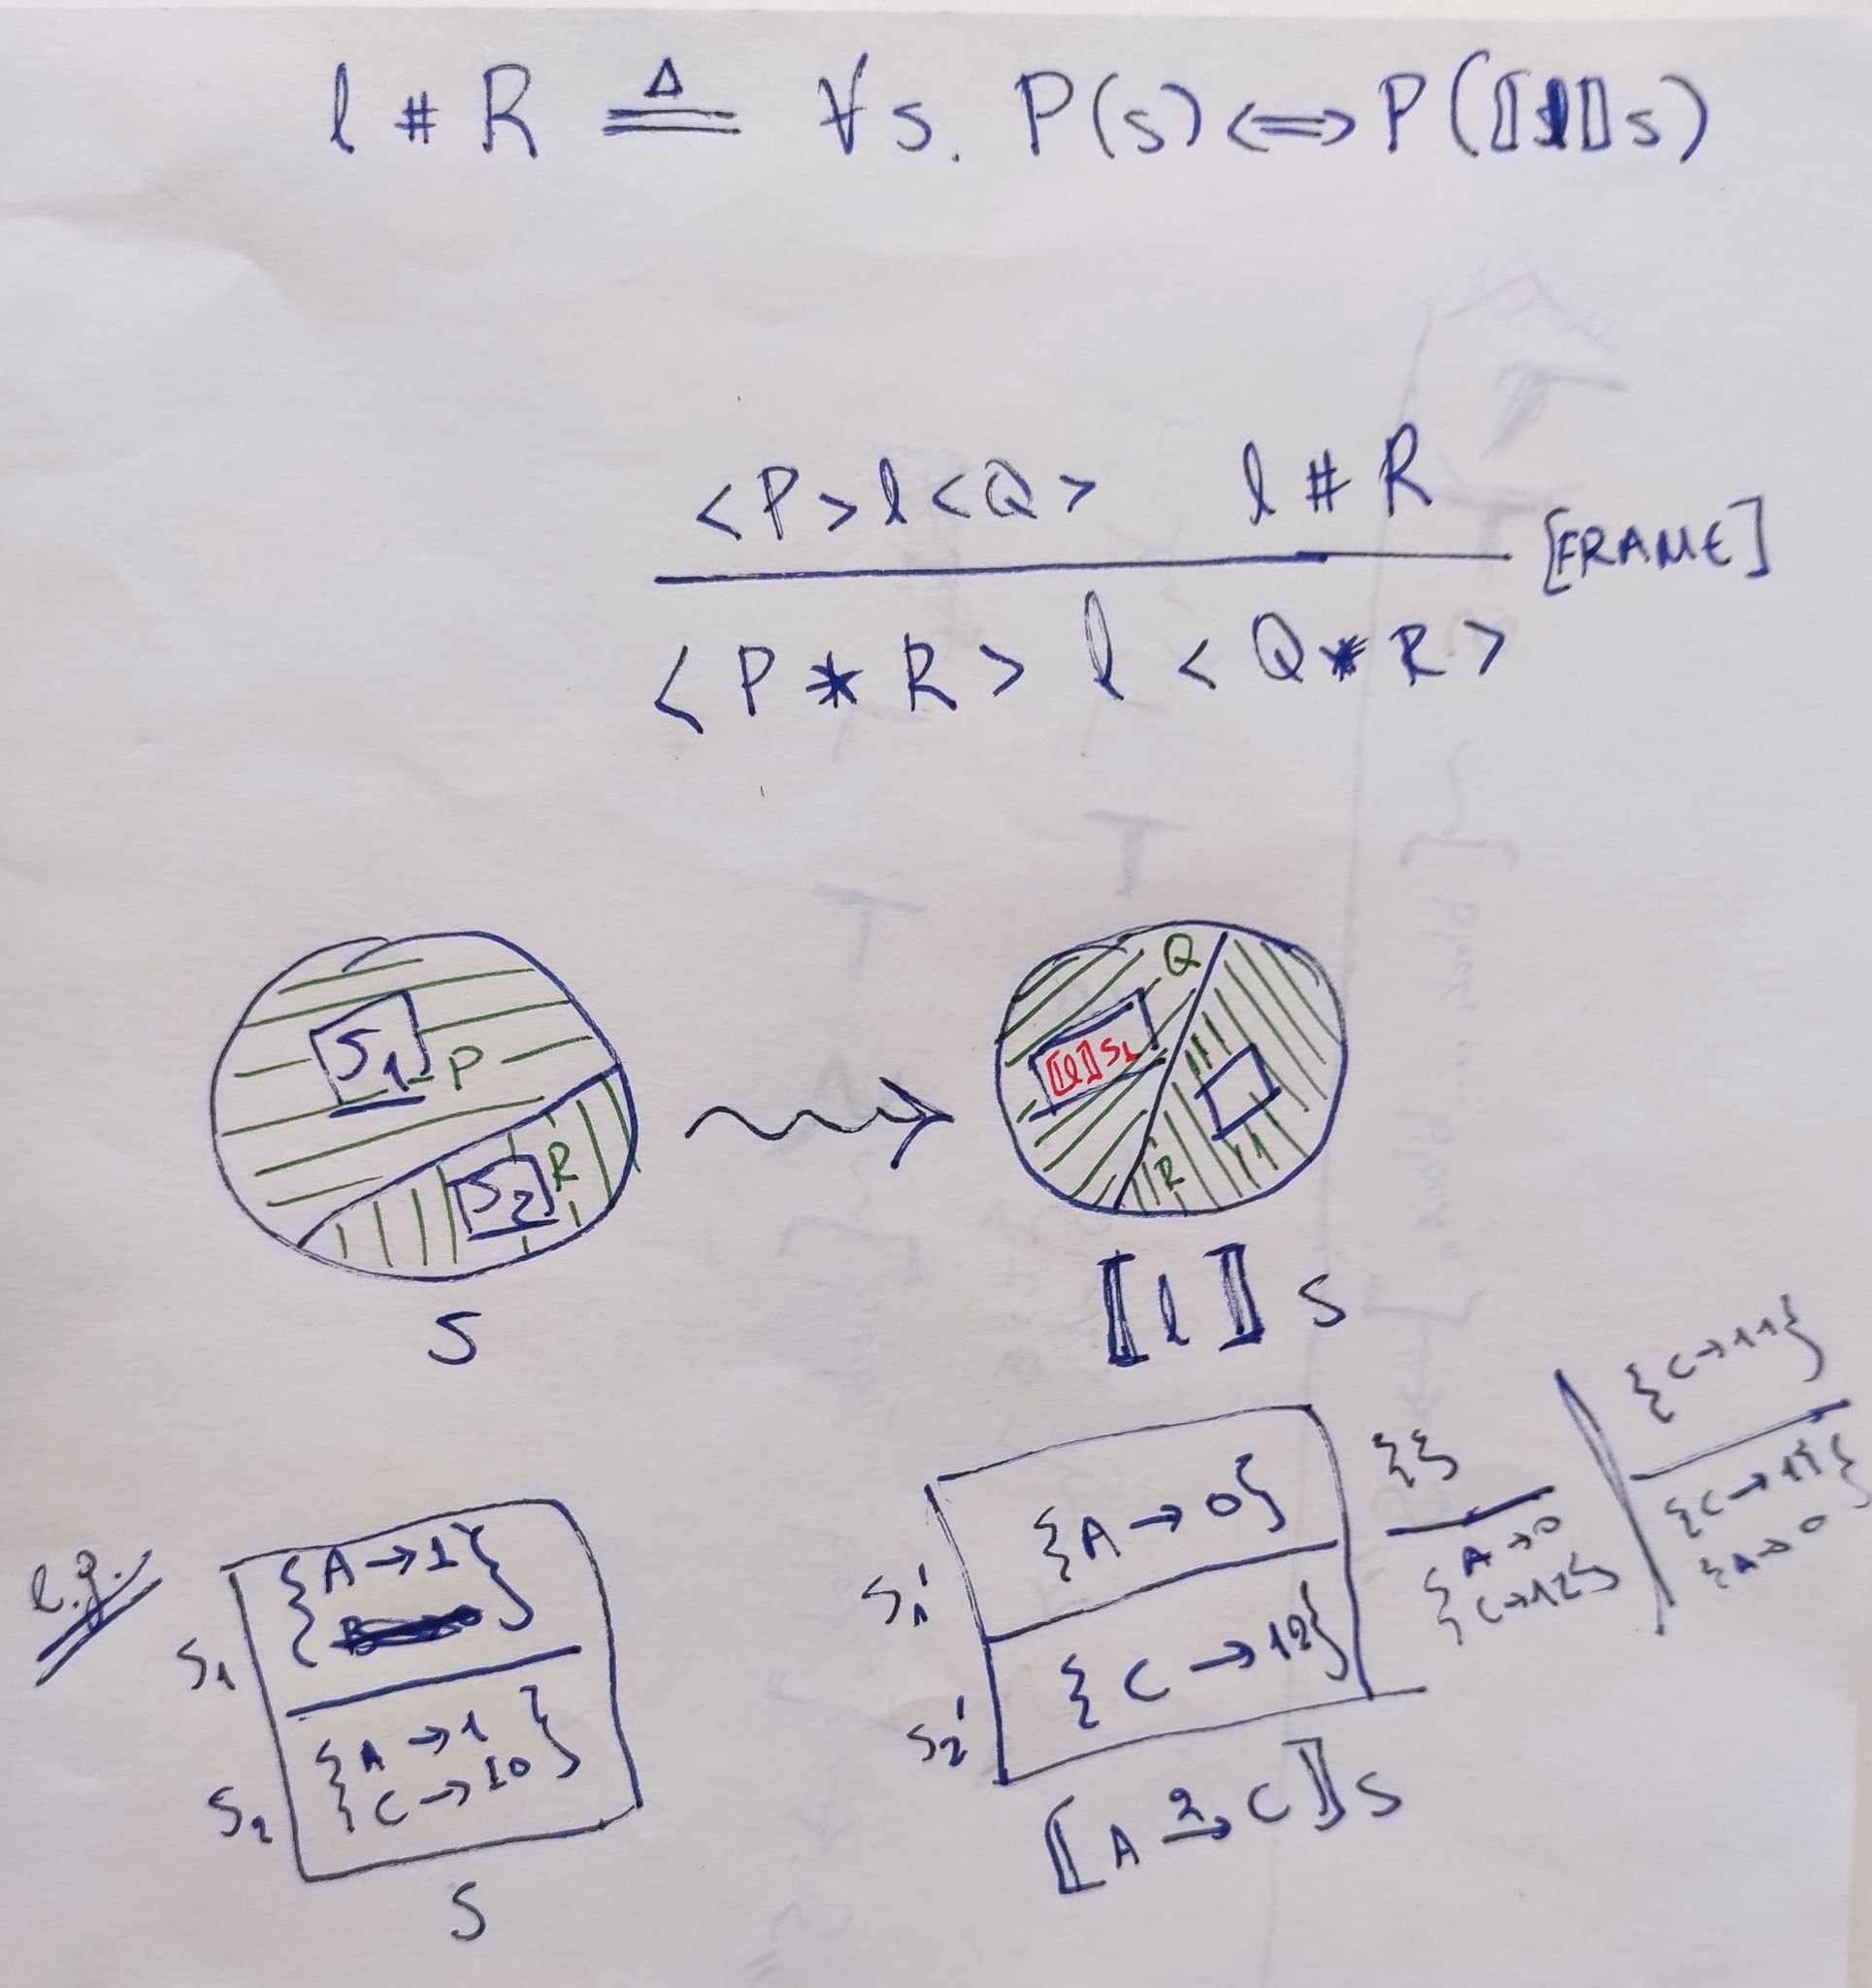 l # R ≜ ∀s. P(s) <=> P(⟦l⟧s)
<P> l <Q> l # R
[FRAME]
<P * R> l <Q * R>
S₁ P
S₂ R
S
Q
⟦l⟧S₁
R
⟦l⟧ S
e.g.
S₁ {A → 1}
S₂ {A → 1
C → 10}
S
S₁' {A → 0}
S₂' {C → 12}
⟦A 2→ C⟧S
{}
{A → 0
C → 12}
{C → 11}
{C → 11}
{A → 0